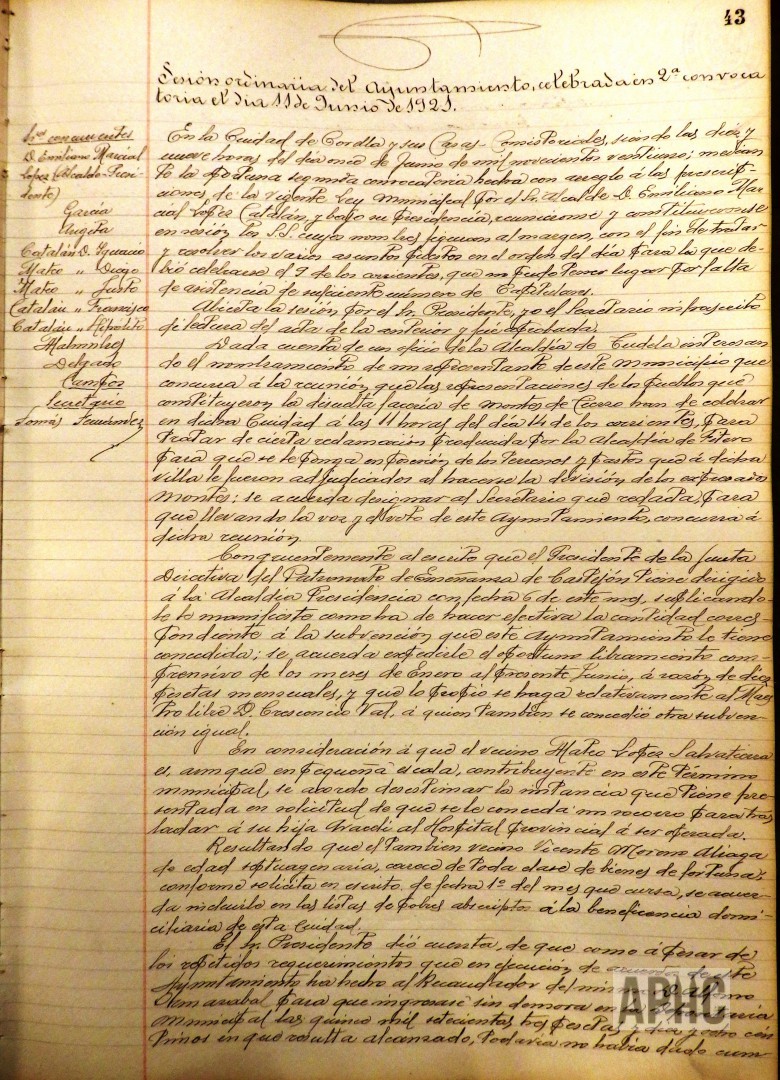 43
Sesión ordinaria del Ayuntamiento, celebrada en 2ª convoca
toria el dia 11 de Junio de 1921.
Sres concurrentes
D. Emiliano Marcial
Lopez (Alcalde-Presi-
dente)
García
Augita
Catalán D. Ignacio
Mateo " Diego
Mateo " Justo
Catalán " Francisco
Catalán " Hipólito
Malumbres
Delgado
Campos
Secretario
Tomás Fernández
En la Ciudad de Corella y sus Casas-Consistoriales, siendo las diez y
nueve horas del dia once de Junio de mil novecientos veintiuno; median
te la oportuna segunda convocatoria hecha con arreglo á las prescrip-
ciones, de la vigente Ley Municipal por el Sr. Alcalde D. Emiliano Mar-
cial Lopez Catalán, y bajo su Presidencia, reunieronse y constituyeronse
en sesión los S.S. cuyos nombres figuran al margen, con el fin de tratar
y resolver los varios asuntos puestos en el orden del dia para la que de-
bió celebrarse el 9 de los corrientes, que no pudo tener lugar por falta
de asistencia de suficiente número de Capitulares.
Abierta la sesión por el Sr. Presidente, yo el Secretario infrascrito
dí lectura del acta de la anterior y fué aprobada.
Dada cuenta de un oficio de la Alcaldía de Tudela interesan
do el nombramiento de un representante de este Municipio que
concurra á la reunión que las representaciones de los pueblos que
constituyeron la disuelta facería de Montes de Cierzo han de celebrar
en dicha Ciudad á las 11 horas del dia 14 de los corrientes, para
tratar de cierta reclamación producida por la Alcaldía de Fitero
para que se le ponga en posesión de los terrenos y pastos que á dicha
villa le fueron adjudicados al hacerse la división de los expresados
Montes; se acuerda designar al Secretario que redacta, para
que llevando la voz y voto de este Ayuntamiento, concurra á
dicha reunión.
Congruentemente al escrito que el Presidente de la Junta
Directiva del Patronato de Enseñanza de Castejón tiene dirigido
á la Alcaldía Presidencia con fecha 6 de este mes, suplicando-
le le manifieste como ha de hacer efectiva la cantidad corres-
pondiente á la subvención que este Ayuntamiento le tiene
concedida; se acuerda expedirle el oportuno libramiento com-
prensivo de los meses de Enero al presente Junio, á razón de diez
pesetas mensuales, y que lo propio se haga relativamente al Maes
tro libre D. Crescencio Val, á quien tambien se concedió otra subven-
ción igual.
En consideración á que el vecino Mateo Lopez Salvatierra
es, aunque en pequeña escala, contribuyente en este término
municipal, se acordó desestimar la instancia que tiene pre-
sentada en solicitud de que se le conceda un socorro para tras
ladar á su hija Araceli al Hospital provincial á ser operada.
Resultando que el tambien vecino Vicente Moreno Aliaga
de edad septuagenaria, carece de toda clase de bienes de fortuna;
conforme solicita en escrito de fecha 1º del mes que cursa, se acuer-
da incluirlo en las listas de pobres abscriptos á la beneficencia domi-
ciliaria de esta Ciudad.
El Sr. Presidente dió cuenta, de que como á pesar de
los repetidos requerimientos que en ejecución de acuerdo de este
Ayuntamiento ha hecho al Recaudador del mismo
para que ingresase sin demora en
Municipal las quince mil setecientas tres pesetas y
timos en que resulta alcanzado, todavía no había dado cum-
APHC